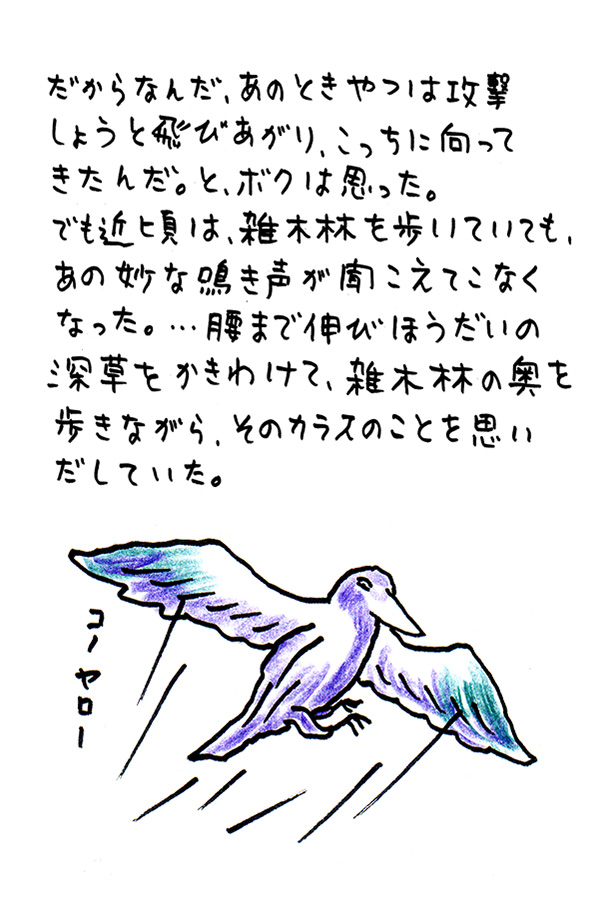 だからなんだ、あのときやつは攻撃
しょうと飛びあがり、こっちに向って
きたんだ。と、ボクは思った。
でも近頃は、雑木林を歩いていても、
あの妙な鳴き声が聞こえてこなく
なった。…腰まで伸びほうだいの
深草をかきわけて、雑木林の奥を
歩きながら、そのカラスのことを思い
だしていた。
コノヤロー